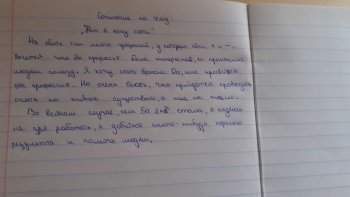 Сочинение на тему:
"Кем я хочу стать."
На свете есть много профессий, у которых есть + и -.
Хочется что бы профессия была интересной, и приносила
людям пользу. Я хочу стать врачом. Да, мне нравится
эта профессия. Но очень боюсь, что придётся проводить
опыты на живых существах, а мне их жалко.
Во всяком случае, кем бы я не стала, я
не зря работать, а добиться какого-нибудь хорошего
результата и помочь людям.